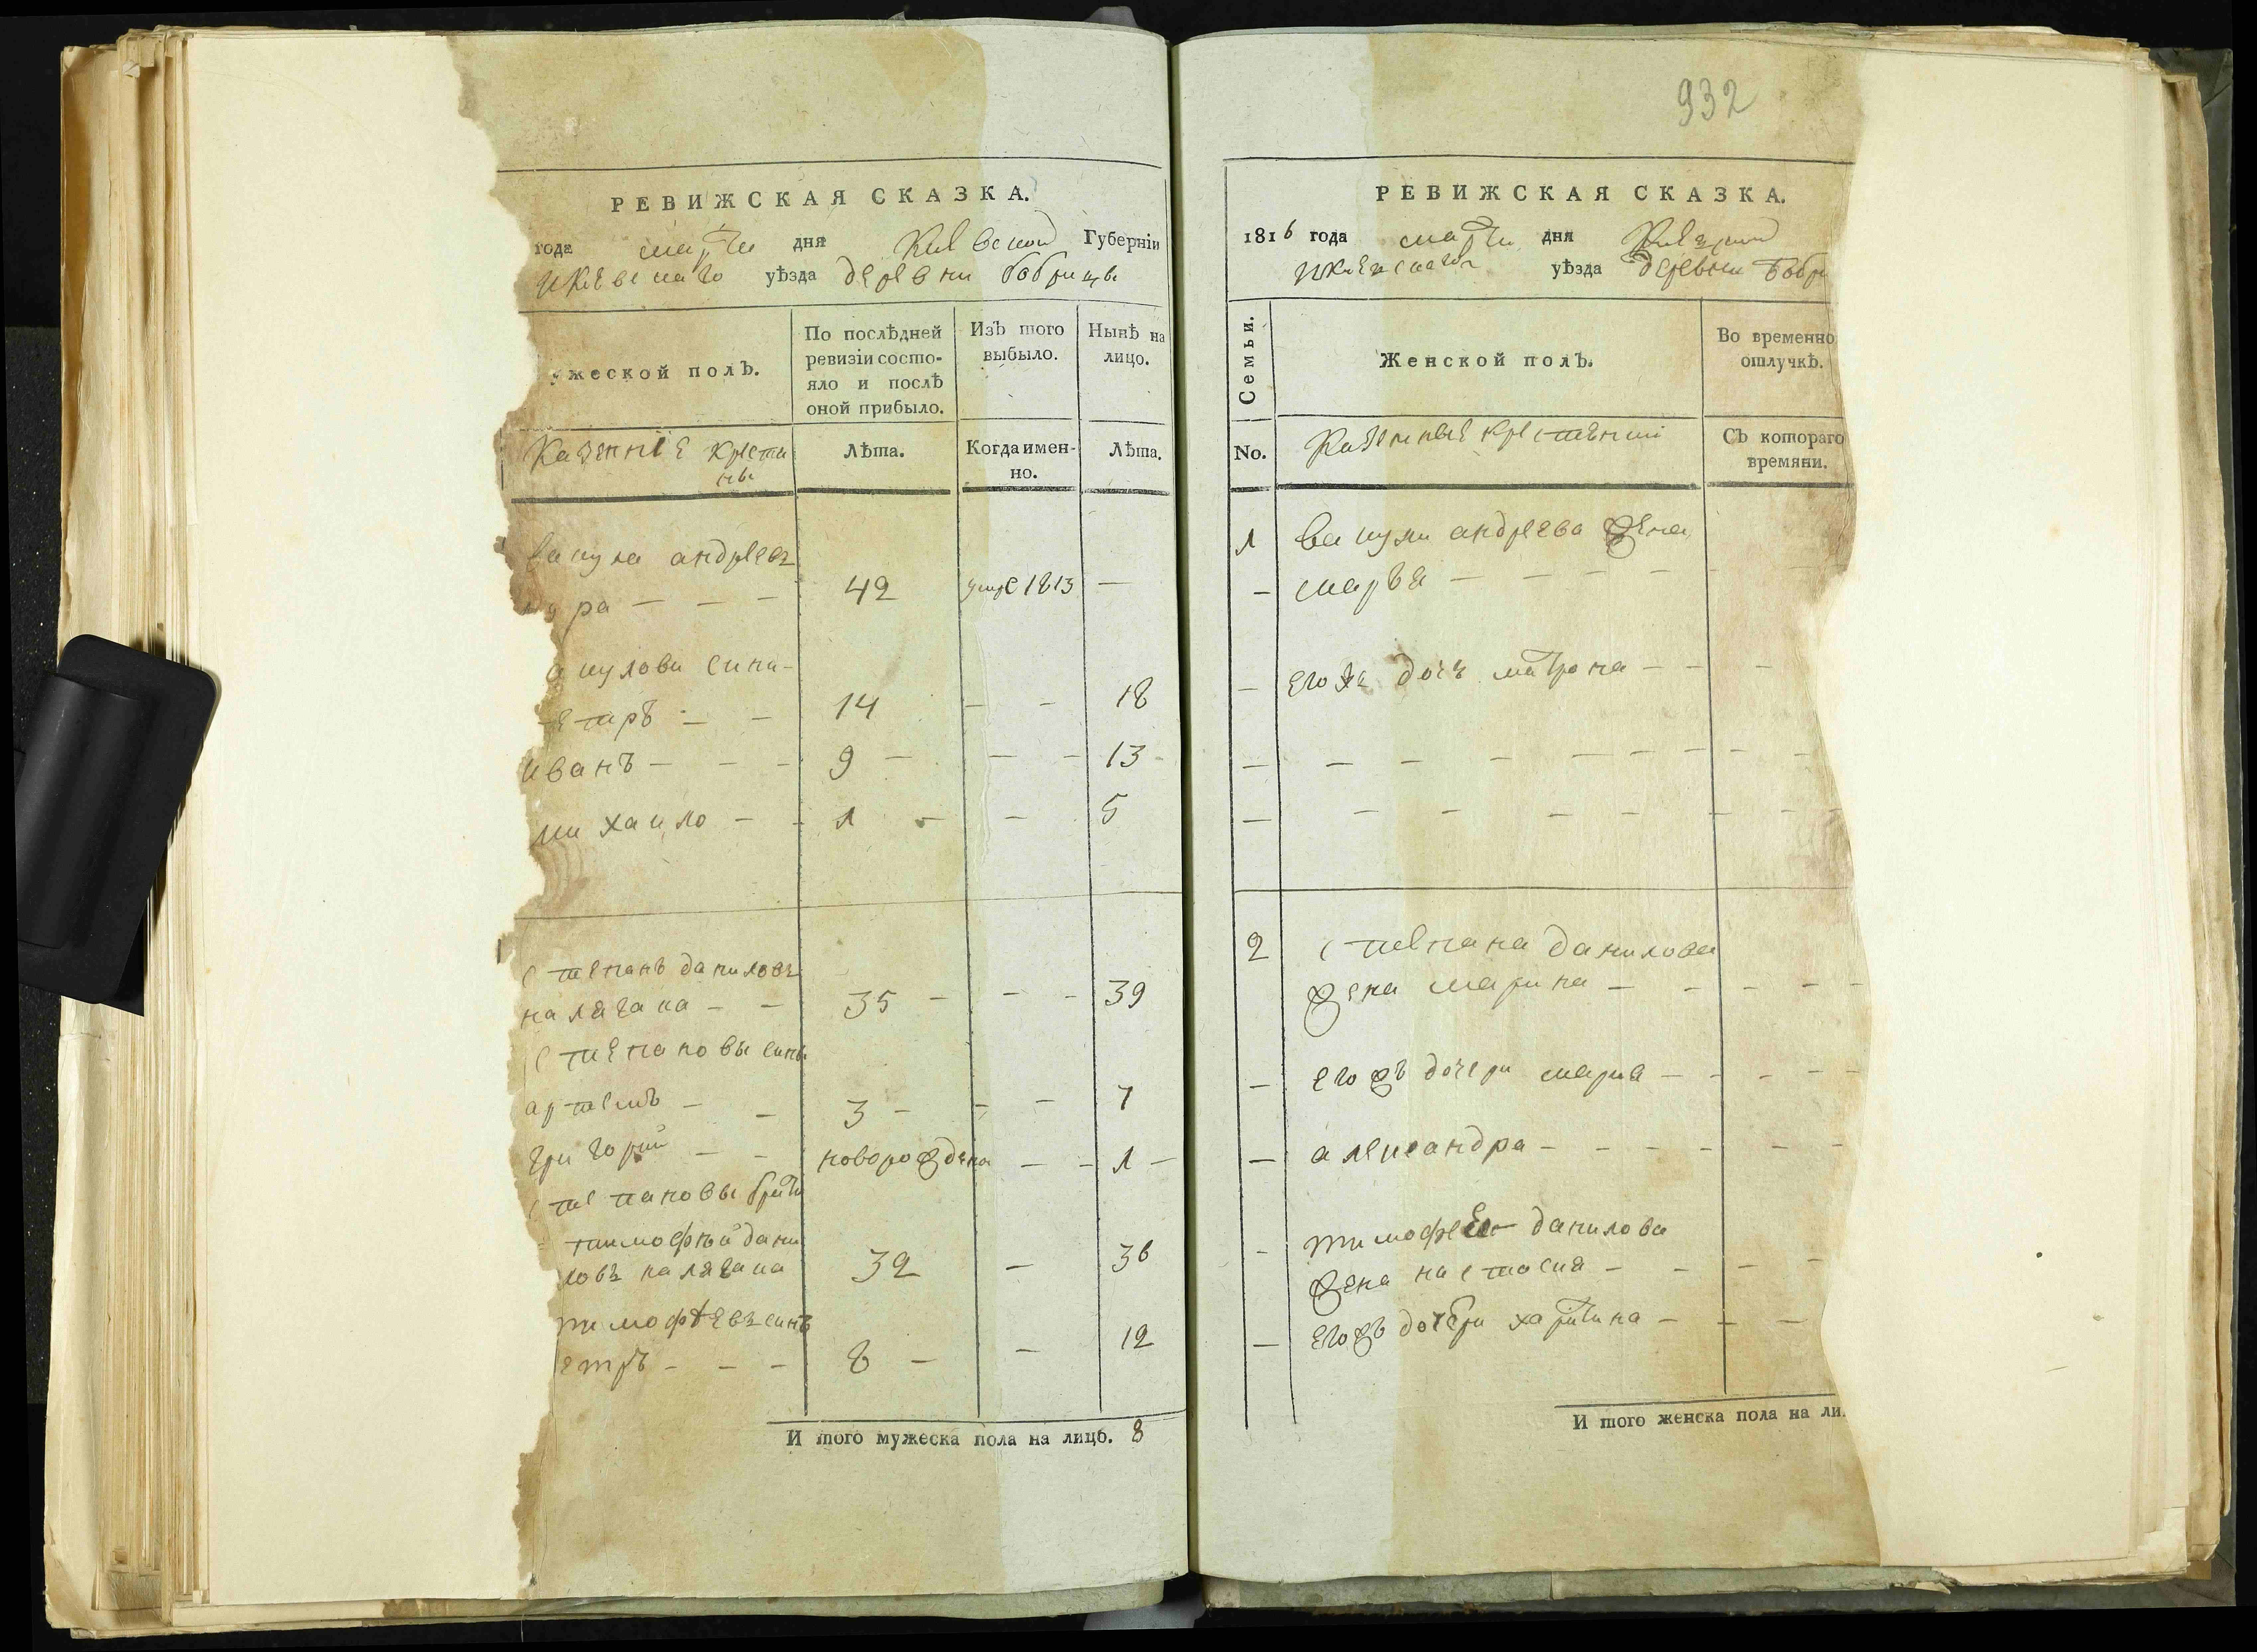 932
РЕВИЖСКАЯ СКАЗКА.
года марта дня Киевской Губерніи
и Киевскаго уѣзда деревни бобрицы
ужеской полЪ.
По послѣдней
ревизіи состо-
яло и послѣ
оной прибыло.
ИзЪ того
выбыло.
Нынѣ на
лицо.
Казенніе крестя
ны
Лѣта.
Когда имен-
но.
Лѣта.
вакула андреевъ
ура — — — 42 умре 1813 —
акулови сини-
етръ — — 14 — — 18
иванъ — — — 9 — — — 13
михаило — — 1 — — 5
степанъ даниловъ
калягака — — 35 — — — 39
степановы сины
артемъ — — 3 — — — 7
григорий — — новорождена — — 1 —
степановы брати
тимофѣй дани
ловъ калягака 32 — 36
тимофѣевъ синъ
етръ — — — 8 — — 12
И того мужеска пола на лицо. 8
РЕВИЖСКАЯ СКАЗКА.
1816 года марта дня Киевской
и Киевскаго уѣзда деревни Бобри
Семьи.
Женской полЪ.
Во временно
отлучкѣ.
No.
Казенные крестянки
СЪ котораго
времяни.
1 вакули андреева жена
— маря — — — — —
— егожъ дочъ матрона — — —
— — — — — — — — —
— — — — — — — —
2 степана данилова
жена марина — — — — —
— егожъ дочери мария — — — —
— александра — — — — — —
— тимофея данилова
жена настасия — — — —
— егожъ дочери харитина — — —
И того женска пола на ли